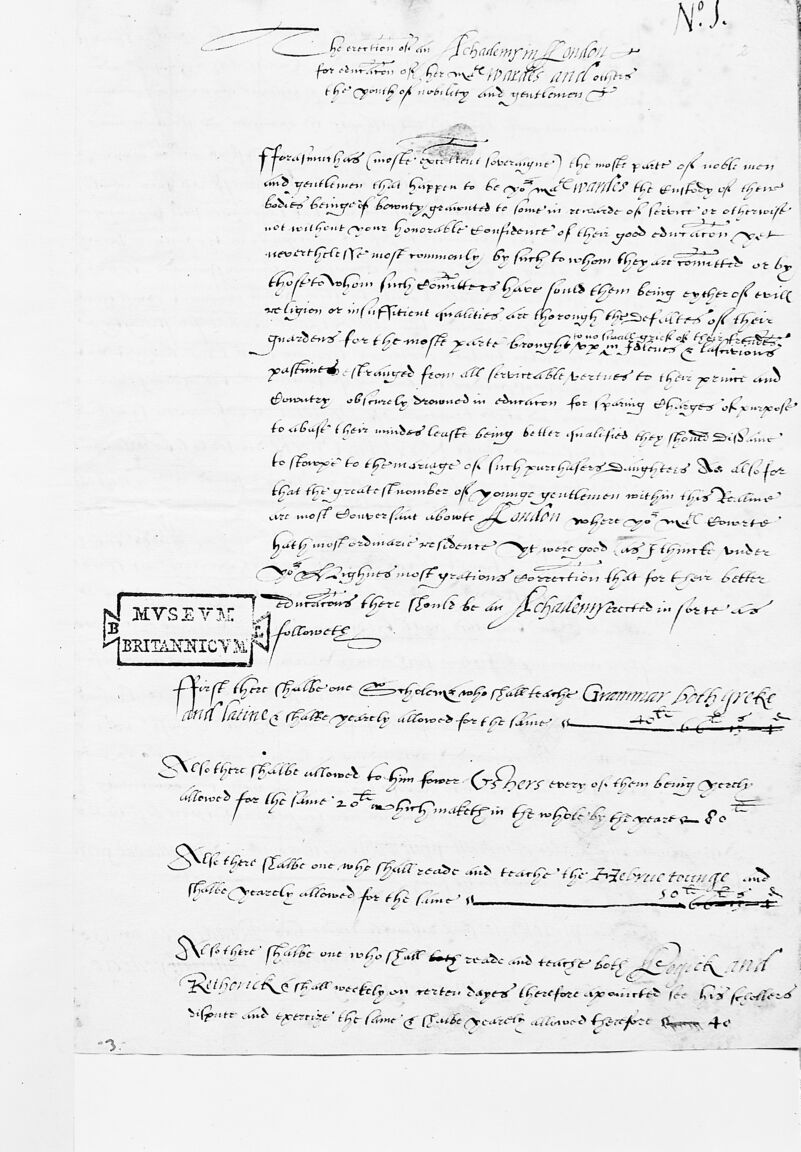 No. 1.
2
The erection of an Achademy in London
for educacon of her Matꝭ Wardes and others
the youth of nobility and gentlemen
fforasmuchas (moste excellent soveraigne) the moste parte of noble men
and gentlemen that happen to be yor Matꝭ wardes the Custody of there
bodies beinge of bownty grawnted to some in rewarde of service or otherwise
not without your honorable Confidence of their good educacon yet
neverthelesse most commonly by such to whom they are comitted or by
those to whom such Comitters have sould them being eyther of evill
religion or insufficient qualities are thorough the defaltes of their
to no small grief of their frendes
guardens for the moste parte brought upp in Idlenes & lascivious
pastimes estranged from all serviceable vertues to their prince and
Cowntry obscurely drowned in educacon for sparing Charges of purpose
to abase their mindes leaste being better qualified they should disdaine
to stowpe to the mariage of such purchasers daughters As also for
that the greatest number of younge gentlemen within this Realme
are most Conversant abowte London where yor Matꝭ Cowrte
hath most ordinarie residence yt were good (as I thincke under
yor Highnes most gratious Correction that for their better
educacons there should be an Achademy erected in sorte as
followeth
MVSEVM
BRITANNICVM
ffirst there shalbe one Scholemr who shall teache Grammar both greke
and latine & shalbe yearely allowed for the same 40li 66li s d
Also there shalbe allowed to him fower Ushers every of them being yerely
allowed for the same 20li which maketh in the whole by the yeare 80li
Also there shalbe one who shall reade and teache the Hebrue tounge and
shalbe yearely allowed for the same 50li 66li s d
Also there shalbe one who shall both reade and teache both Logick and
Rethorick & shall weekely on certen dayes therefore apointed see his schollers
dispute and exercize the same & shalbe yearely allowed therefore 40
3.